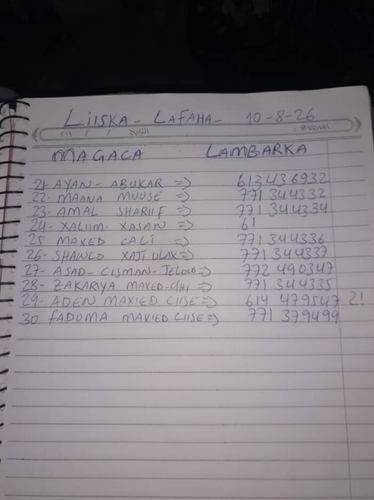 LIISKA - LAFAHA - 10-8-26
MAGACA LAMBARKA
21- AYAN - ABUKAR => 613436932
22- MAANA MUUSE => 771344332
23- AMAL SHARIIF => 771344334
24- XALIIM- XASAN => 61
25 MAXED CALI => 771344336
26- XAJI => 771344337
27- ASAD- CISMAN- => 772490347
28- ZAKARIYA MAXED- => 771344335
29- ADEN MAXIED CIISE => 614 479547 21
30 FADUMA MAXIED CIISE => 771 379499